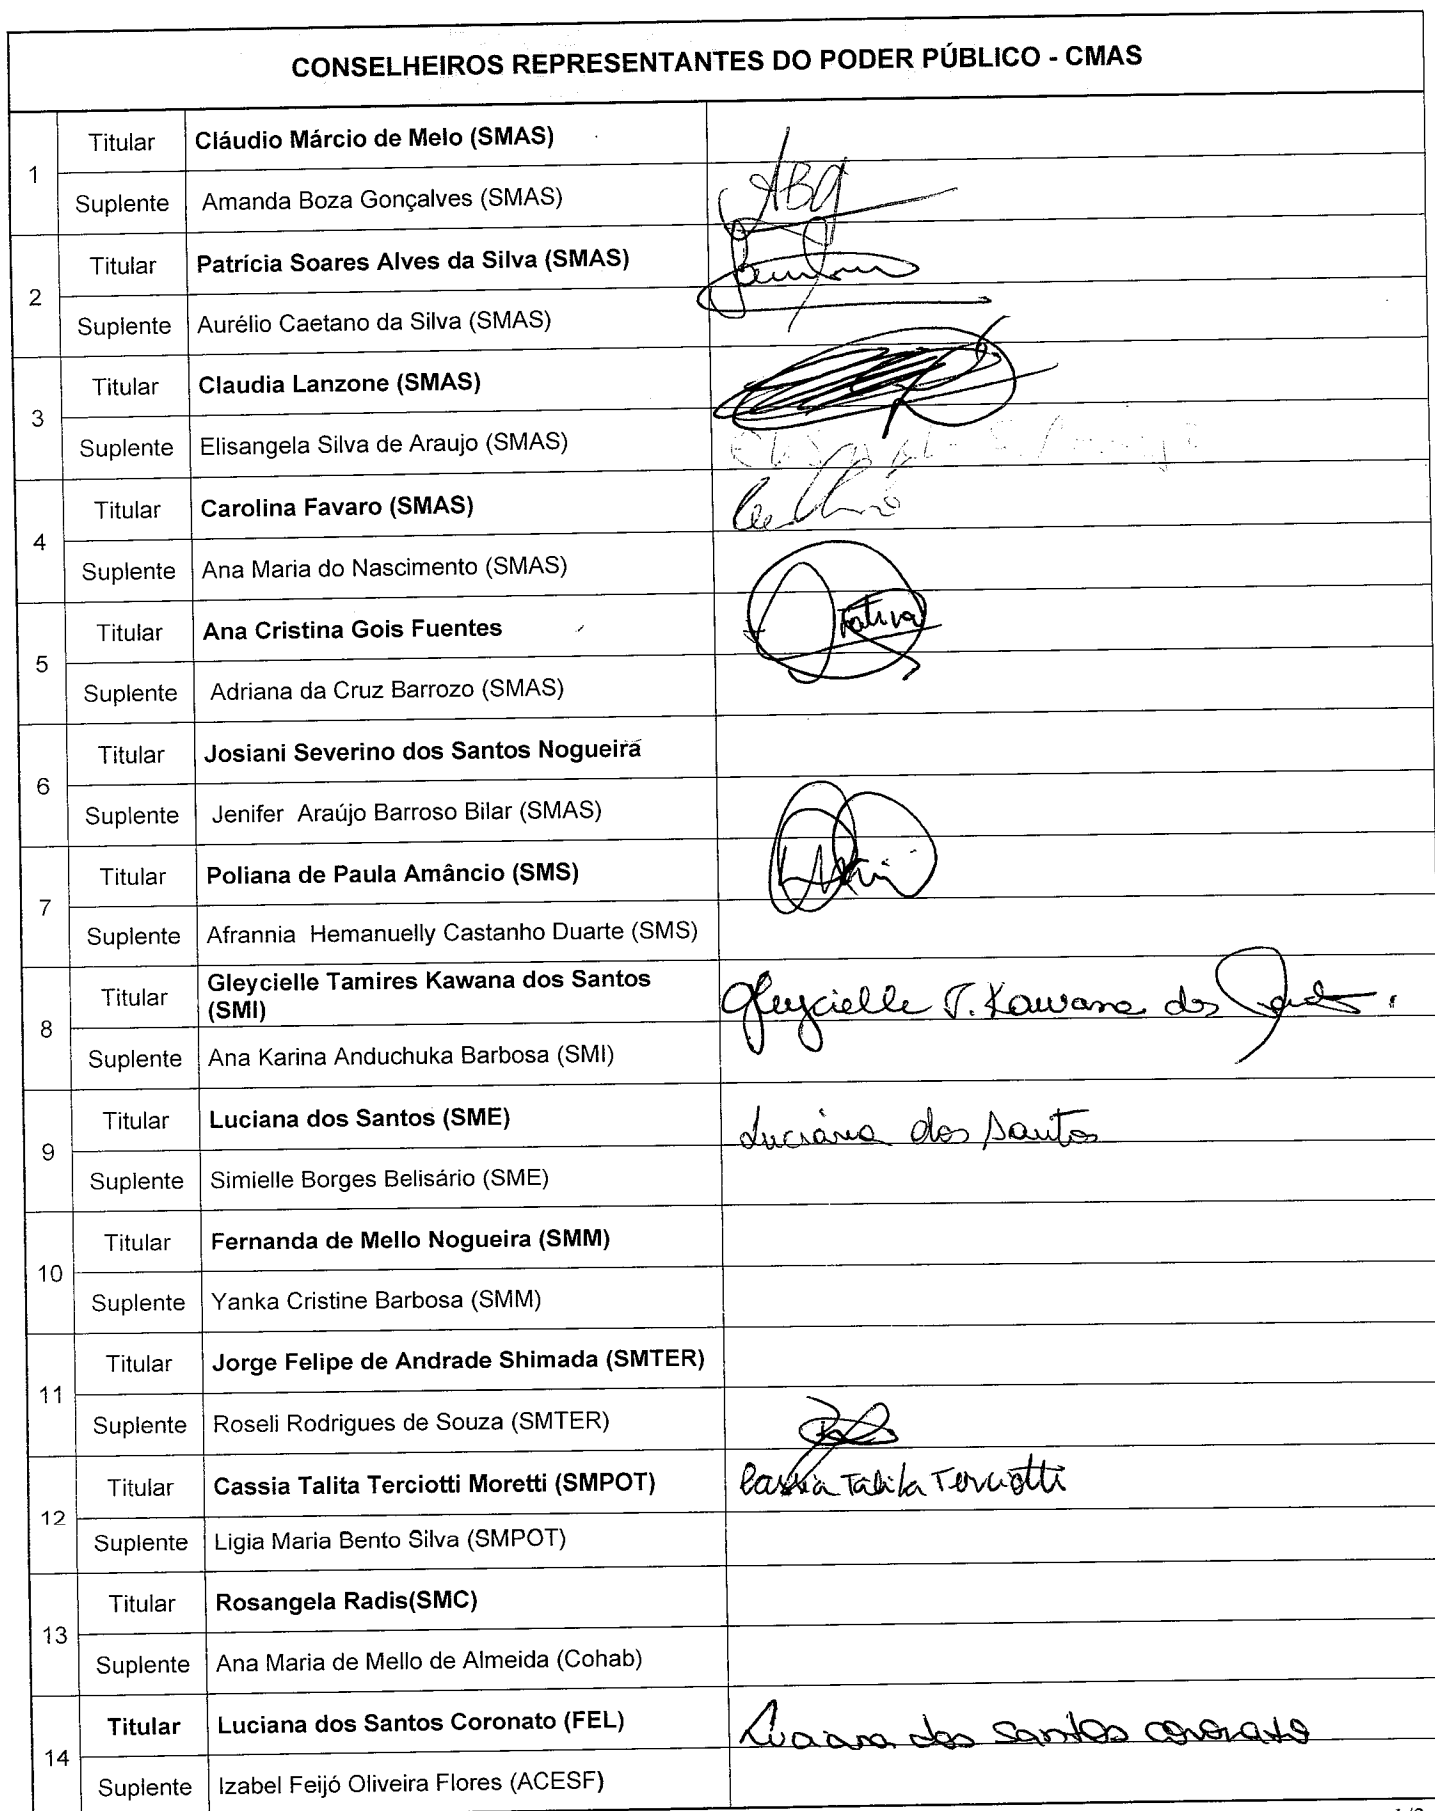 CONSELHEIROS REPRESENTANTES DO PODER PÚBLICO - CMAS
1
Titular Cláudio Márcio de Melo (SMAS)
Suplente Amanda Boza Gonçalves (SMAS) ABG
2
Titular Patrícia Soares Alves da Silva (SMAS)
Suplente Aurélio Caetano da Silva (SMAS)
3
Titular Claudia Lanzone (SMAS)
Suplente Elisangela Silva de Araujo (SMAS)
4
Titular Carolina Favaro (SMAS)
Suplente Ana Maria do Nascimento (SMAS)
5
Titular Ana Cristina Gois Fuentes
Suplente Adriana da Cruz Barrozo (SMAS)
6
Titular Josiani Severino dos Santos Nogueira
Suplente Jenifer Araújo Barroso Bilar (SMAS)
7
Titular Poliana de Paula Amâncio (SMS)
Suplente Afrannia Hemanuelly Castanho Duarte (SMS)
8
Titular Gleycielle Tamires Kawana dos Santos
(SMI) Gleycielle T. Kawana dos Santos
Suplente Ana Karina Anduchuka Barbosa (SMI)
9
Titular Luciana dos Santos (SME) Luciana dos Santos
Suplente Simielle Borges Belisário (SME)
10
Titular Fernanda de Mello Nogueira (SMM)
Suplente Yanka Cristine Barbosa (SMM)
11
Titular Jorge Felipe de Andrade Shimada (SMTER)
Suplente Roseli Rodrigues de Souza (SMTER)
12
Titular Cassia Talita Terciotti Moretti (SMPOT) Cassia Talita Terciotti
Suplente Ligia Maria Bento Silva (SMPOT)
13
Titular Rosangela Radis(SMC)
Suplente Ana Maria de Mello de Almeida (Cohab)
14
Titular Luciana dos Santos Coronato (FEL) Luciana dos Santos Coronato
Suplente Izabel Feijó Oliveira Flores (ACESF)